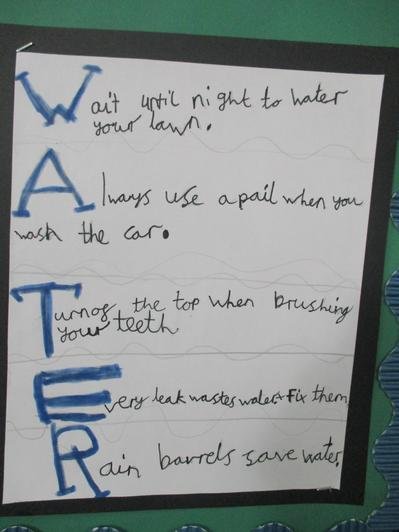 Wait until night to water
your lawn.
Always use a pail when you
wash the car.
Turnog the top when brushing
your teeth
Every leak wastes water Fix them
Rain barrels save water.